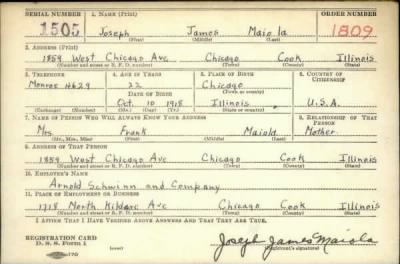 SERIAL NUMBER 1. NAME (Print) ORDER NUMBER
1505 Joseph James Maiola 1809
(First) (Middle) (Last)
2. ADDRESS (Print)
1859 West Chicago Ave. Chicago Cook Illinois
(Number and street or R. F. D. number) (Town) (County) (State)
3. TELEPHONE 4. AGE IN YEARS 5. PLACE OF BIRTH 6. COUNTRY OF CITIZENSHIP
Monroe 4629 22 Chicago
DATE OF BIRTH (Town or county)
Oct. 10 1918 Illinois U.S.A.
(Exchange) (Number) (Mo.) (Day) (Yr.) (State or country)
7. NAME OF PERSON WHO WILL ALWAYS KNOW YOUR ADDRESS 8. RELATIONSHIP OF THAT PERSON
Mrs. Frank Maiola Mother
(Mr., Mrs., Miss) (First) (Middle) (Last)
9. ADDRESS OF THAT PERSON
1859 West Chicago Ave Chicago Cook Illinois
(Number and street or R. F. D. number) (Town) (County) (State)
10. EMPLOYER'S NAME
Arnold Schwinn and Company
11. PLACE OF EMPLOYMENT OR BUSINESS
1718 North Kildare Ave Chicago Cook Illinois
(Number and street or R. F. D. number) (Town) (County) (State)
I AFFIRM THAT I HAVE VERIFIED ABOVE ANSWERS AND THAT THEY ARE TRUE.
REGISTRATION CARD
D. S. S. Form 1 (over) Joseph James Maiola
(Registrant's signature)